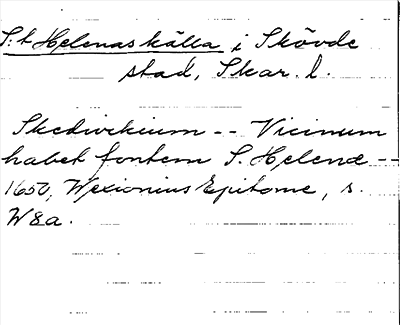 S:t Helenas källa i Skövde
stad, Skar. l.
Skedvekium -- Vicinum
habet fontem S. Helenæ --
1650, Wexionius Epitome, s.
W8a.